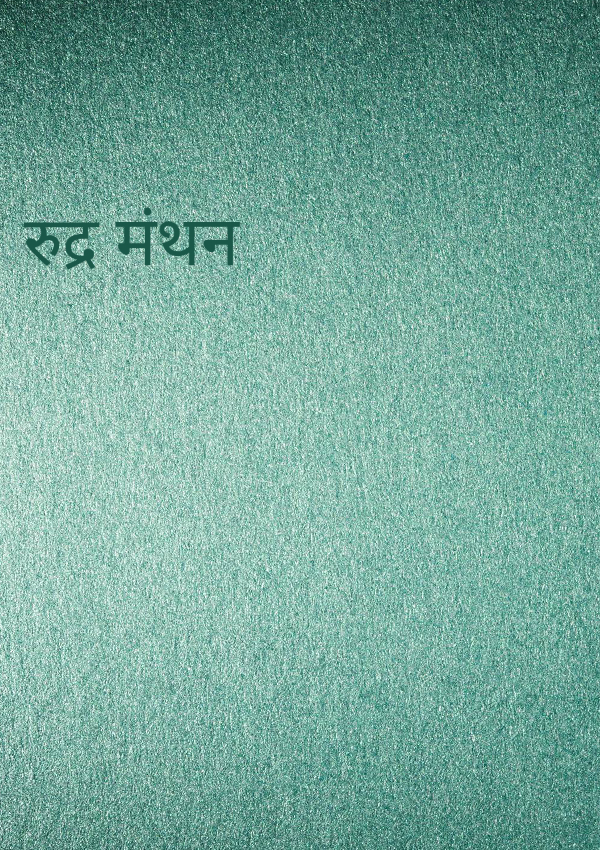 रुद्र मंथन